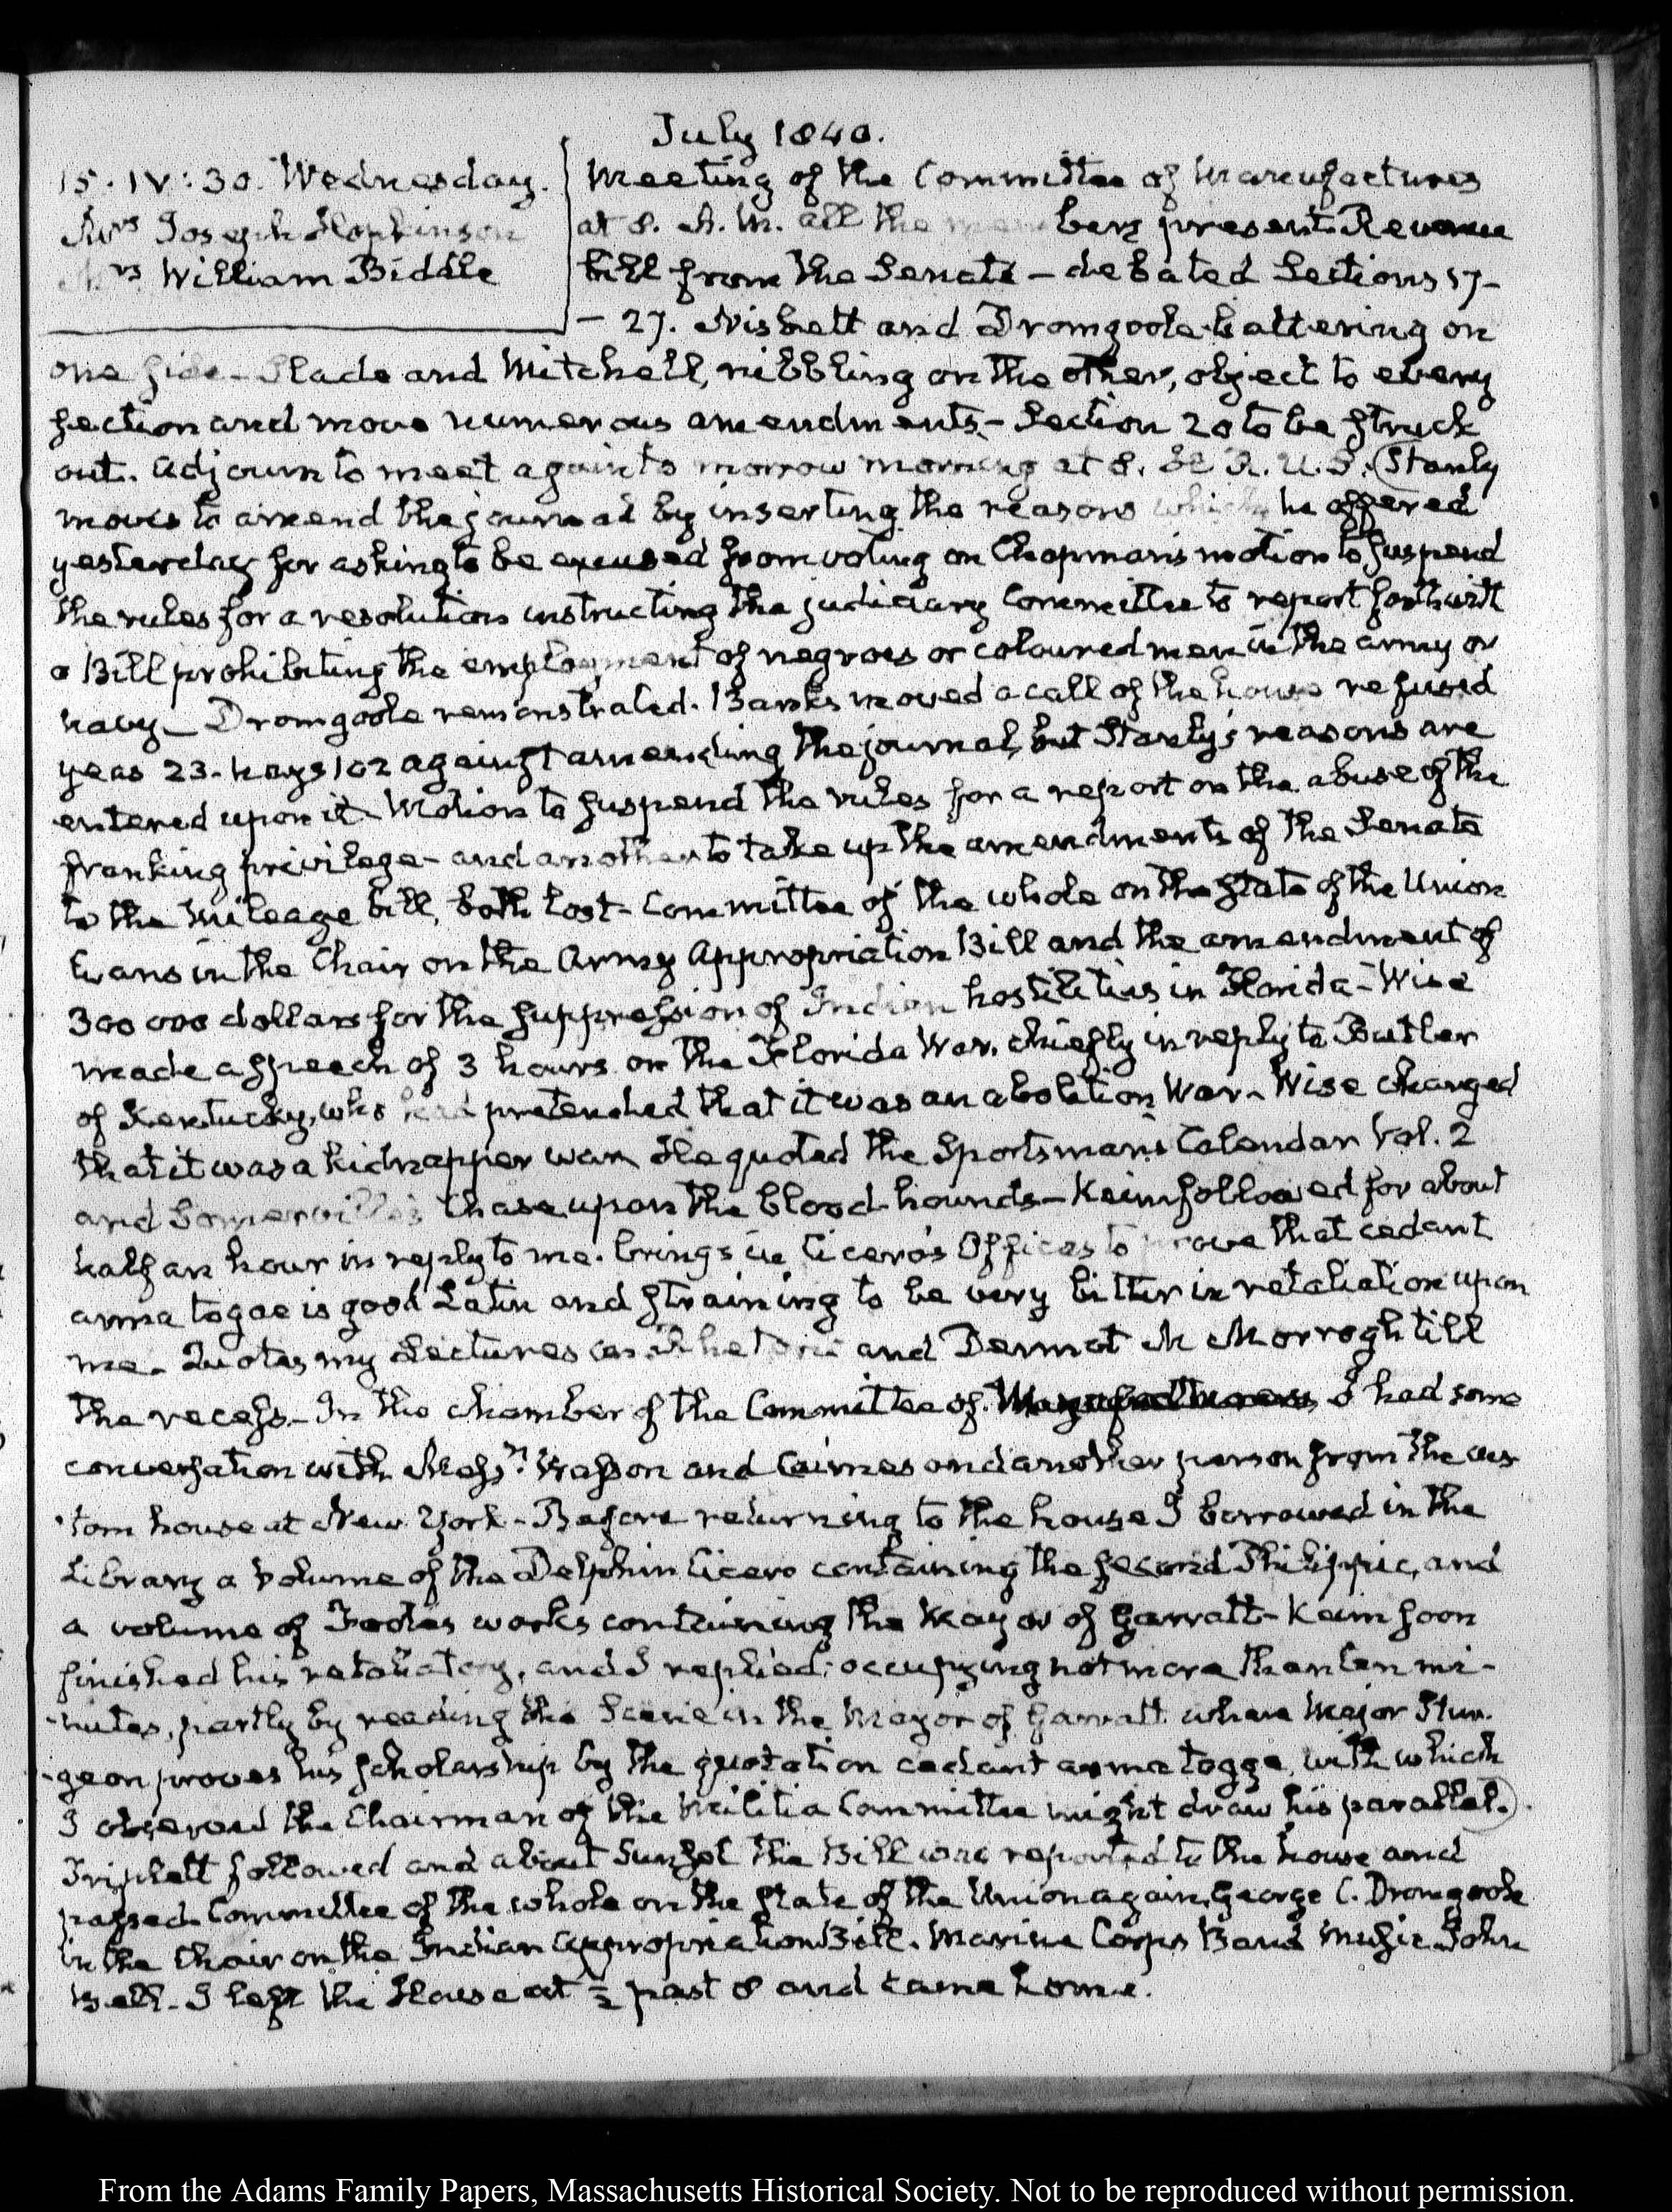 July 1840.
15. IV:30. Wednesday.
Mrs Joseph Hopkinson
Mrs William Biddle
Meeting of the Committee of Manufactures
at 8. A. M. all the members present. Revenue
bill from the Senate – debated Sections 17–
– 27. Nisbett and Dromgoole battering on
one side – Slade and Mitchell, nibbling on the other, object to every
section and move numerous amendments – Section 20 to be struck
out. Adjourn to meet again to morrow morning at 8. H. R. U. S. (Stanly
moves to amend the journal by inserting the reasons which he offered
yesterday for asking to be excused from voting on Chapman's motion to suspend
the rules for a resolution instructing the judiciary Committee to report forthwith
a Bill prohibiting the employment of negroes or coloured men in the army or
navy – Dromgoole remonstrated. Banks moved a call of the house refused
yeas 23. nays 102 against amending the journal, but Stanly's reasons are
entered upon it – Motion to suspend the rules for a report on the abuse of the
franking privilege – and another to take up the amendments of the Senate
to the mileage bill, both lost – Committee of the whole on the state of the Union
Evans in the Chair on the Army Appropriation Bill and the amendment of
300 000 dollars for the suppression of Indian hostilities in Florida – Wise
made a speech of 3 hours on the Florida War, chiefly in reply to Butler
of Kentucky, who had pretended that it was an abolition War – Wise charged
that it was a kidnapper war. He quoted the Sportsman's Calendar Vol. 2
and Somerville's Chase upon the blood-hounds – Keim followed for about
half an hour in reply to me. brings in Cicero's Offices to prove that cedant
arma togae is good Latin and straining to be very bitter in retaliation upon
me – Quotes my Lectures on Rhetoric and Dermot McMorrogh till
the recess – In the chamber of the Committee of Manufactures I had some
conversation with Messrs. Wasson and Cairnes and another person from the cus
-tom house at New York – Before returning to the house I borrowed in the
Library a volume of the Delphin Cicero containing the second Philippic, and
a volume of Foote's works containing the Mayor of Garratt – Keim soon
finished his retaliatory, and I replied; occupying not more than ten mi-
-nutes, partly by reading the Scene in the Mayor of Garratt where Major Stur-
-geon proves his scholarship by the quotation cedant arma togge, with which
I observed the Chairman of the Militia Committee might draw his parallel.).
Triplett followed and about Sunset the Bill was reported to the house and
passed. Committee of the whole on the state of the Union again, George C. Dromgoole
in the Chair on the Indian Appropriation Bill. Marine Corps Band Music. John
Bell – I left the House at ½ past 8 and came home.
From the Adams Family Papers, Massachusetts Historical Society. Not to be reproduced without permission.